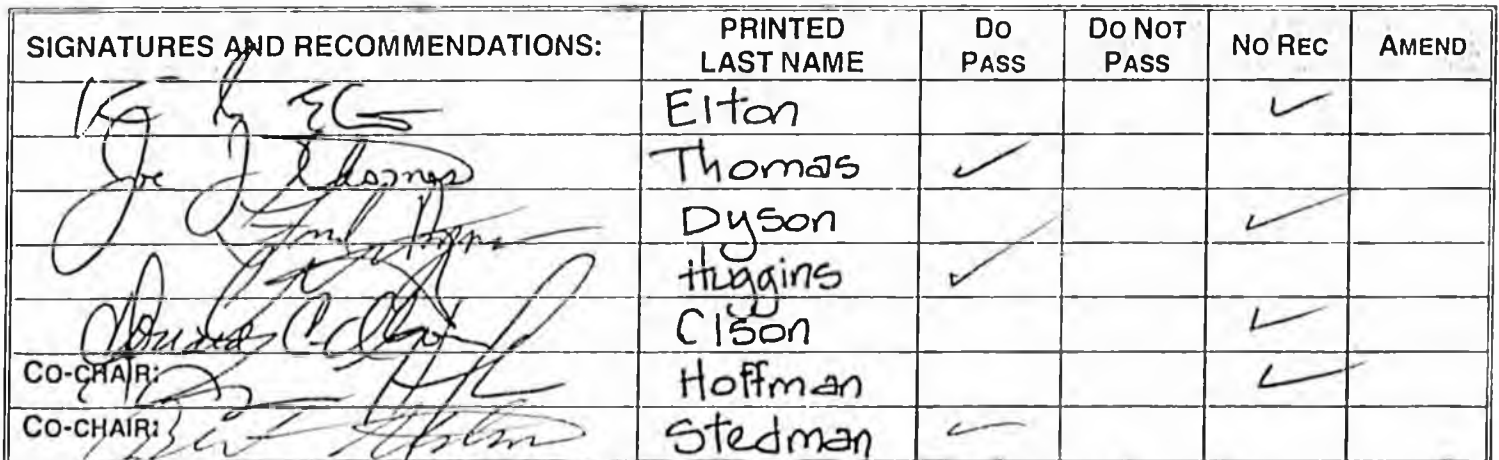 SIGNATURES AND RECOMMENDATIONS: PRINTED LAST NAME DO PASS DO NOT PASS NO REC AMEND
Elton ✓
Joe J Thomas Thomas ✓
Dyson ✓
Huggins ✓
Clson ✓
CO-CHAIR: Hoffman ✓
CO-CHAIR: Bert Stedman ✓